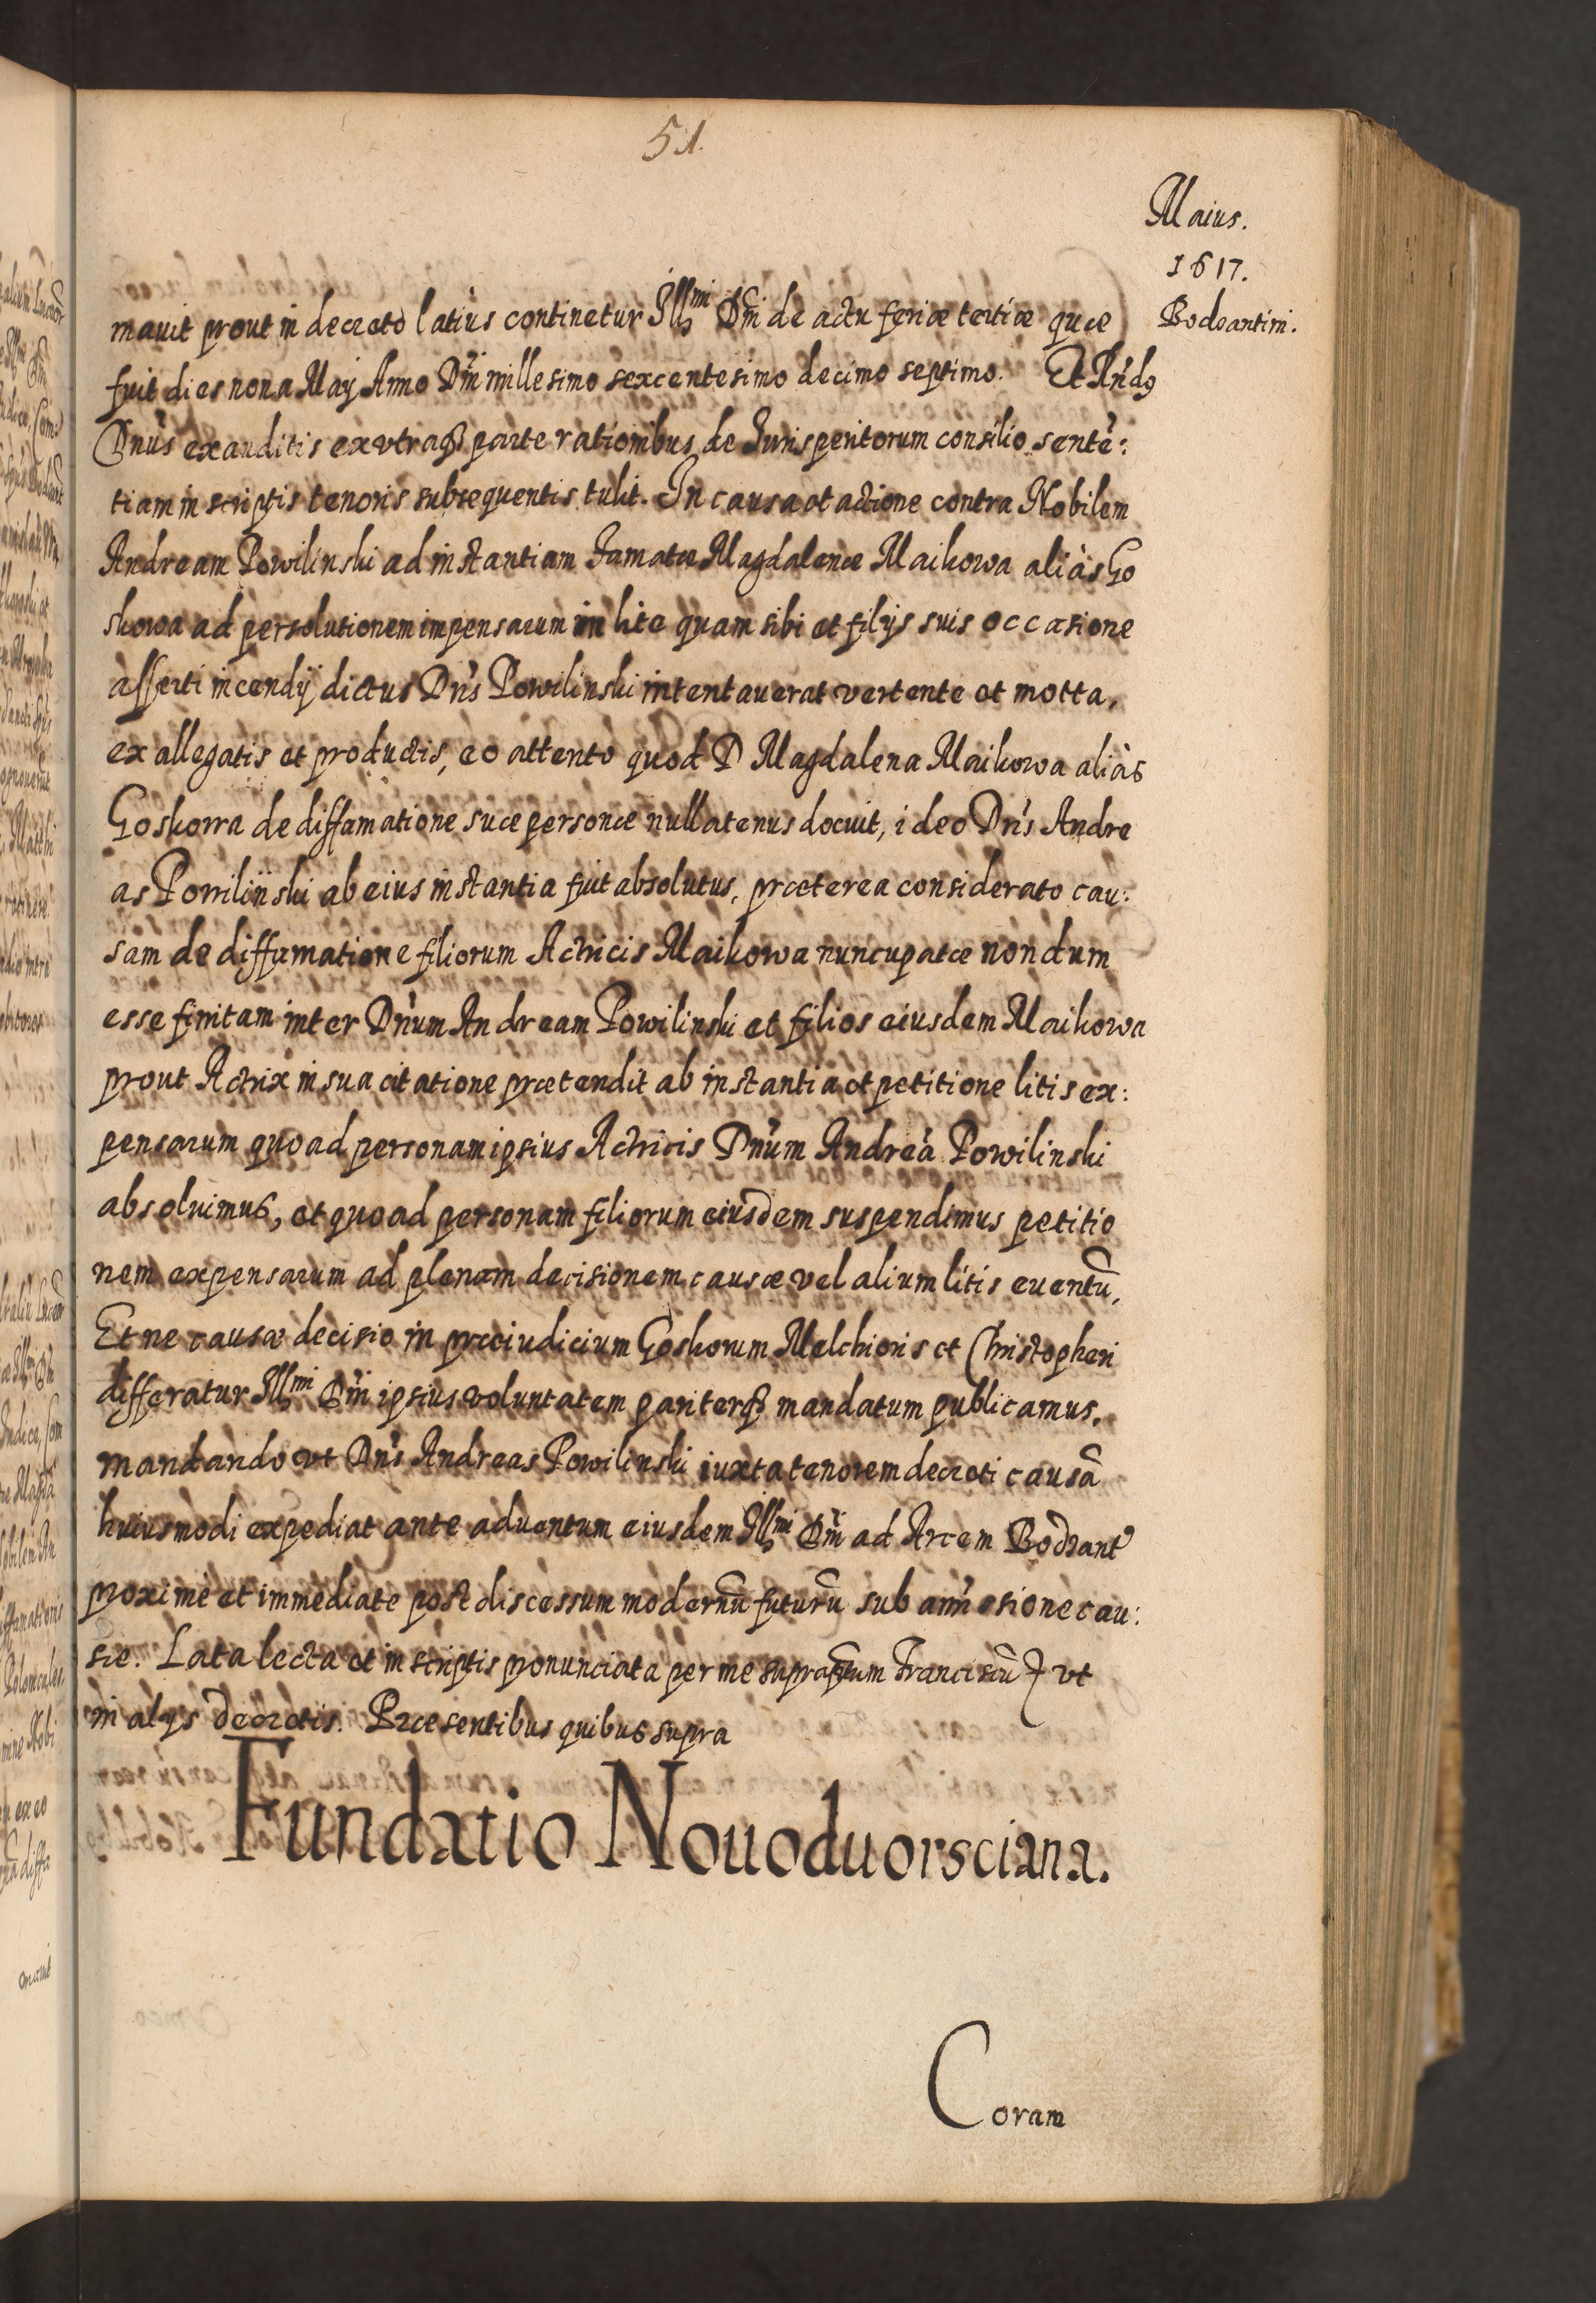 51.
Maius.
1617.
Bodzantini.
mauit prout in decreto latius continetur Illmi Dni de actu feriæ tertiæ quæ
fuit dies nona Maij Anno Dni millesimo sexcentesimo decimo septimo. Et Rndus
Dnus exauditis ex vtraq parte rationibus de Iurisperitorum consilio senten:
tiam in scriptis tenoris subsequentis tulit. In causa et actione contra Nobilem
Andream Powilinski ad instantiam Famatæ Magdalenæ Maikowa aliàs Go
skowa ad persolutionem impensarum in lite quam sibi et filijs suis occasione
asserti incendij dictus Dns Powilinski intentauerat vertente et motta,
ex allegatis et productis, eo attento quod D Magdalena Maikowa aliàs
Goskowa de diffamatione suæ personæ nullatenus docuit, ideo Dns Andre
as Powilinski ab eius instantia fuit absolutus, præterea considerato cau:
sam de diffamatione filiorum Actricis Maikowa nuncupatæ nondum
esse finitam inter Dnum Andream Powilinski et filios eiusdem Maikowa
prout Actrix in sua citatione prætendit ab instantia et petitione litis ex:
pensarum quoad personam ipsius Actricis Dnum Andreã Powilinski
absoluimus, et quoad personam filiorum eiusdem suspendimus petitio
nem expensarum ad plenam decisionem causæ vel alium litis euentũ,
Et ne causæ decisio in præiudicium Goskorum Melchioris et Christopheri
differatur Illmi Dni ipsius voluntatem pariterq mandatum publicamus,
mandando vt Dns Andreas Powilinski iuxta tenorem decreti causã
huiusmodi expediat ante aduentum eiusdem Illmi Dni ad Arcem Bodzant
proximè et immediate post discessum modernũ futurũ sub amissione cau:
sæ. Lata lecta et in scriptis pronunciata per me supraptum Franciscũ vt
in alijs decretis. Præsentibus quibus supra
Fundatio Nouoduorsciana.
Coram